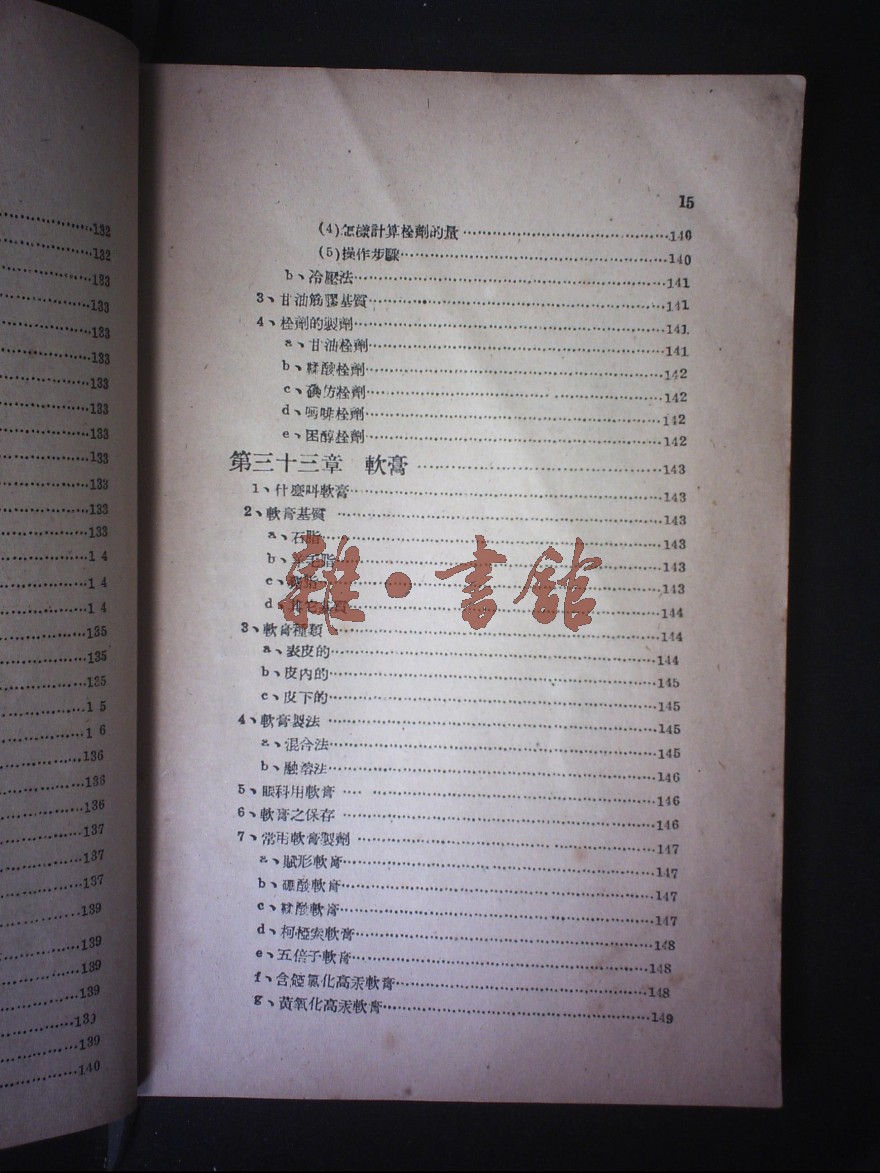 132
132
133
133
133
133
133
133
133
133
133
133
133
1 4
1 4
1 4
135
135
135
1 5
1 6
136
136
136
137
137
137
139
139
139
139
139
139
140
15
(4)怎樣計算栓劑的量 140
(5)操作步驟 140
b、冷壓法 141
3、甘油筋膠基質 141
4、栓劑的製劑 141
a、甘油栓劑 141
b、鞣酸栓劑 142
c、碘仿栓劑 142
d、嗎啡栓劑 142
e、困醇栓劑 142
第三十三章 軟膏 143
1、什麼叫軟膏 143
2、軟膏基質 143
a、石脂 143
b、羊毛脂 143
c、脂 143
d、其它基質 144
3、軟膏種類 144
a、表皮的 144
b、皮內的 145
c、皮下的 145
4、軟膏製法 145
a、混合法 145
b、融溶法 146
5、眼科用軟膏 146
6、軟膏之保存 146
7、常用軟膏製劑 147
a、賦形軟膏 147
b、硼酸軟膏 147
c、鞣酸軟膏 147
d、柯椏索軟膏 148
e、五倍子軟膏 148
f、含錏氯化高汞軟膏 148
g、黃氧化高汞軟膏 149
雜·書館